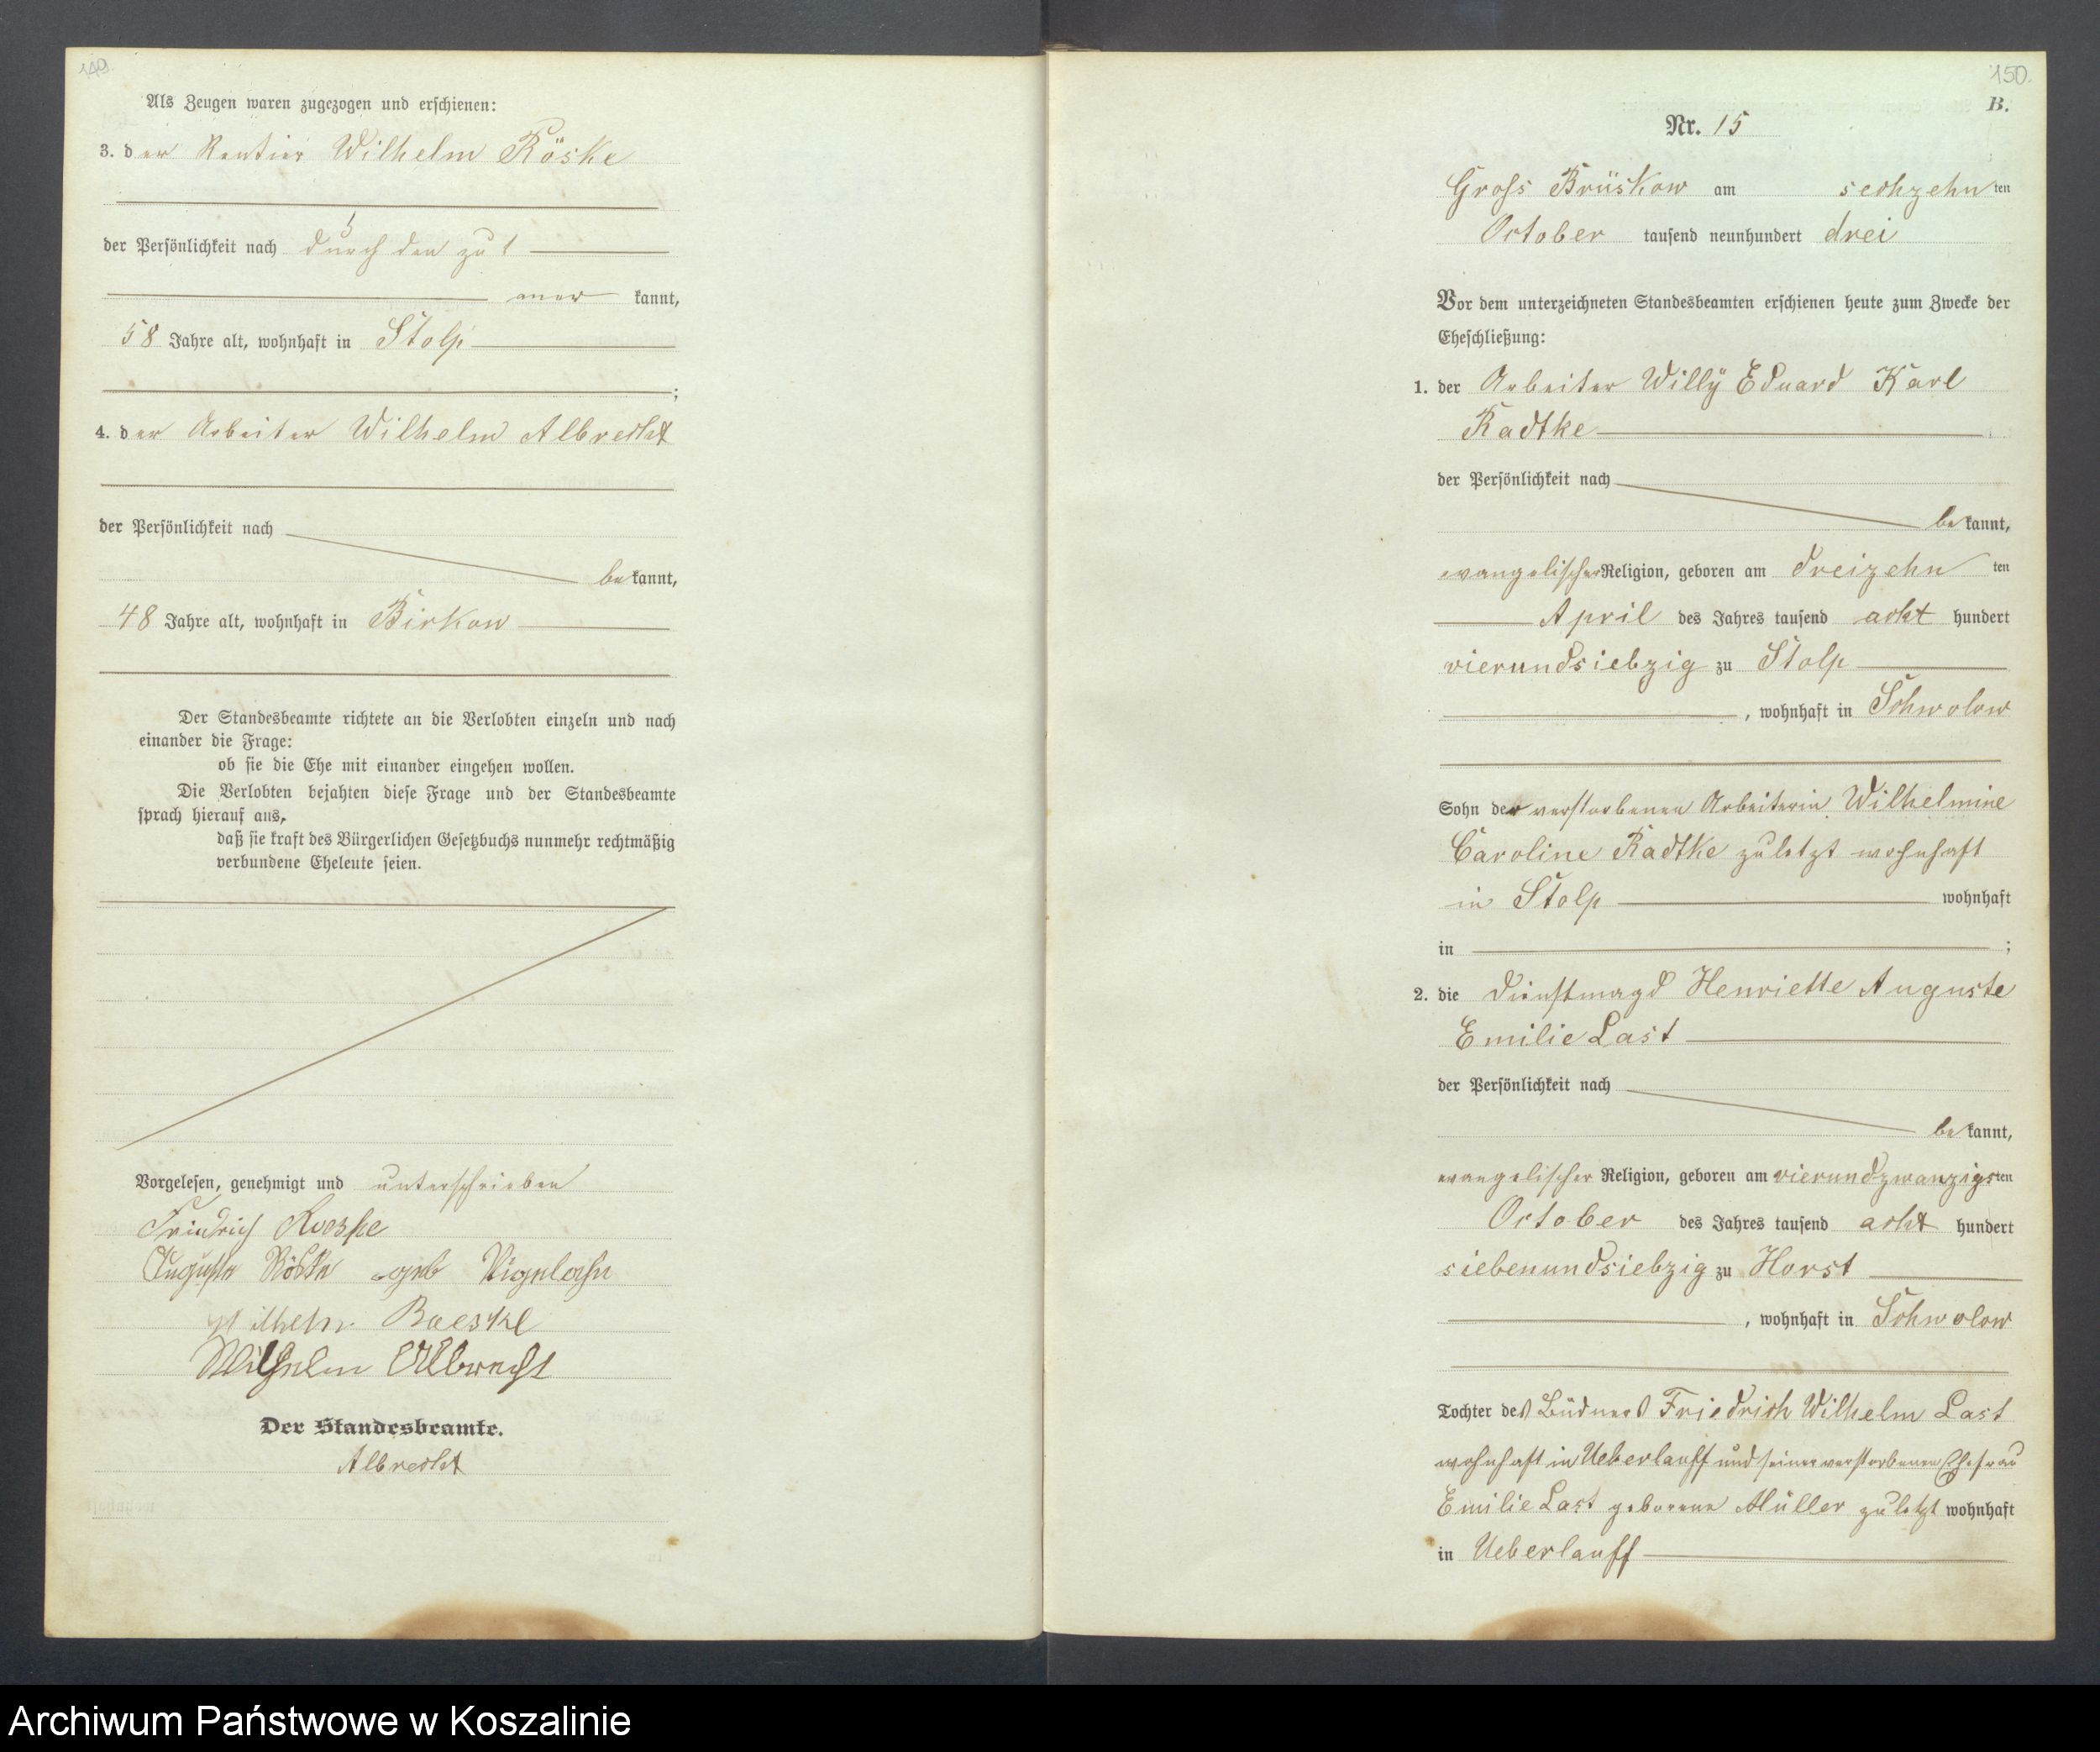 149.
Als Zeugen waren zugezogen und erschienen:
3. der Rentier Wilhelm Röske
der Persönlichkeit nach durch den zu 1
aner kannt,
58 Jahre alt, wohnhaft in Stolp
;
4. der Arbeiter Wilhelm Albrecht
der Persönlichkeit nach
bekannt,
48 Jahre alt, wohnhaft in Birkow
Der Standesbeamte richtete an die Verlobten einzeln und nach
einander die Frage:
ob sie die Ehe mit einander eingehen wollen.
Die Verlobten bejahten diese Frage und der Standesbeamte
sprach hierauf aus,
daß sie kraft des Bürgerlichen Gesetzbuchs nunmehr rechtmäßig
verbundene Eheleute seien.
Vorgelesen, genehmigt und unterschrieben
Friedrich Roeske
Auguste Röske geb
Wilhelm Roeske
Wilhelm Albrecht
Der Standesbeamte.
Albrecht
150.
B.
Nr. 15
Gross Brüskow am sechzehn ten
October tausend neunhundert drei
Vor dem unterzeichneten Standesbeamten erschienen heute zum Zwecke der
Eheschließung:
1. der Arbeiter Willÿ Eduard Karl
Radtke
der Persönlichkeit nach
bekannt,
evangelischer Religion, geboren am dreizehn ten
April des Jahres tausend acht hundert
vierundsiebzig zu Stolp
, wohnhaft in Schwolow
Sohn der verstorbenen Arbeiterin Wilhelmine
Caroline Radtke zuletzt wohnhaft
in Stolp wohnhaft
in ;
2. die Dienstmagd Henriette Auguste
Emilie Last
der Persönlichkeit nach
bekannt,
evangelischer Religion, geboren am vierundzwanzigsten
October des Jahres tausend acht hundert
siebenundsiebzig zu Horst
, wohnhaft in Schwolow
Tochter des Büdners Friedrich Wilhelm Last
wohnhaft in Ueberlauff und seiner verstorbenen Ehefrau
Emilie Last geborene Müller zuletzt wohnhaft
in Ueberlauff
Archiwum Państwowe w Koszalinie